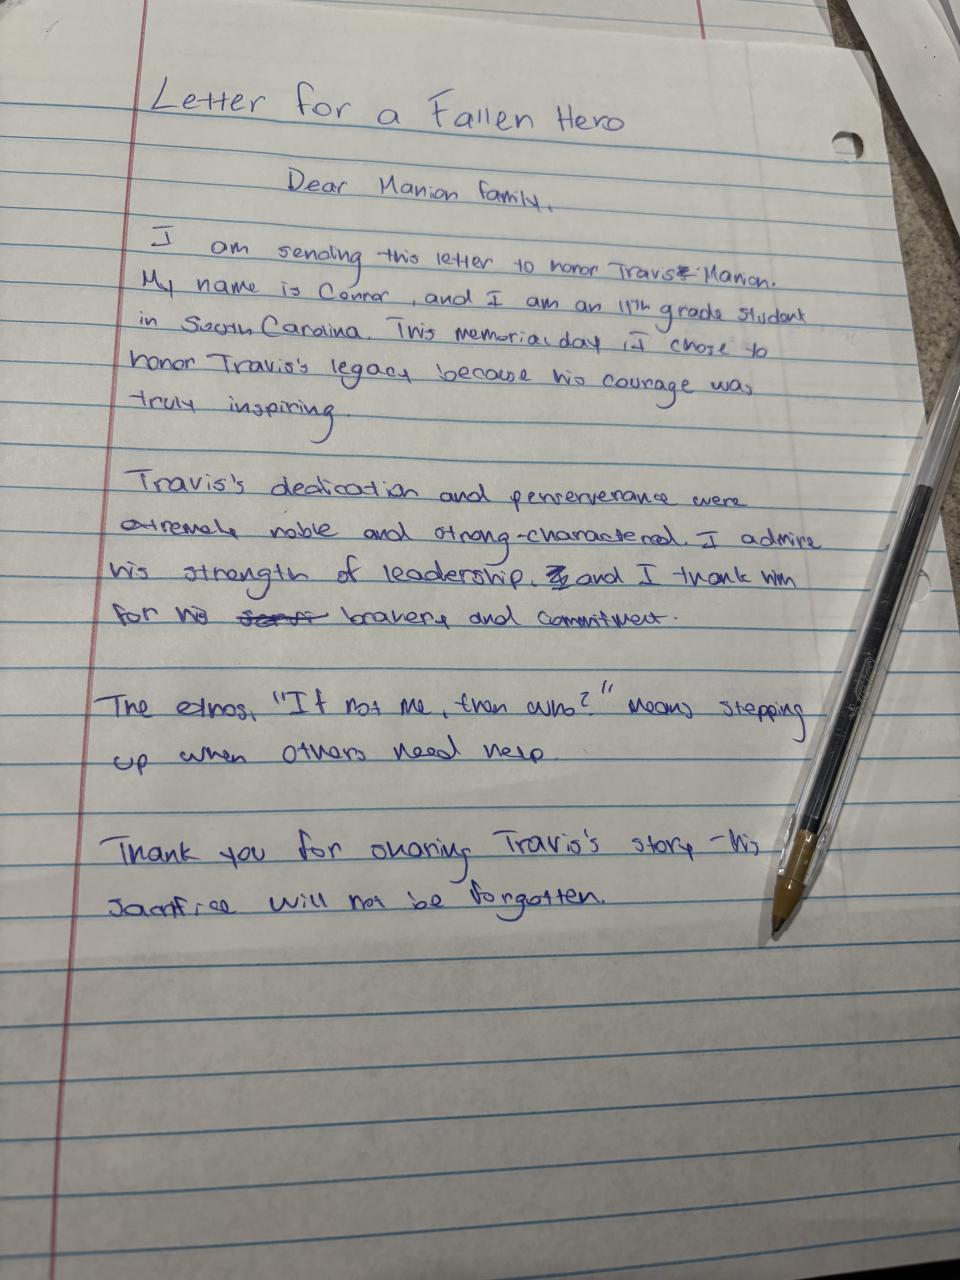 Letter for a Fallen Hero
Dear Manion family,
I am sending this letter to honor Travis Manion.
My name is Connor, and I am an 11th grade student
in South Carolina. This memorial day, I chose to
honor Travis's legacy because his courage was
truly inspiring.
Travis's dedication and perserverance were
extremely noble and strong-charactered. I admire
his strength of leadership, and I thank him
for his bravery and commitment.
The ethos, "If not me, then who?" means stepping
up when others need help.
Thank you for sharing Travis's story - his
sacrifice will not be forgotten.